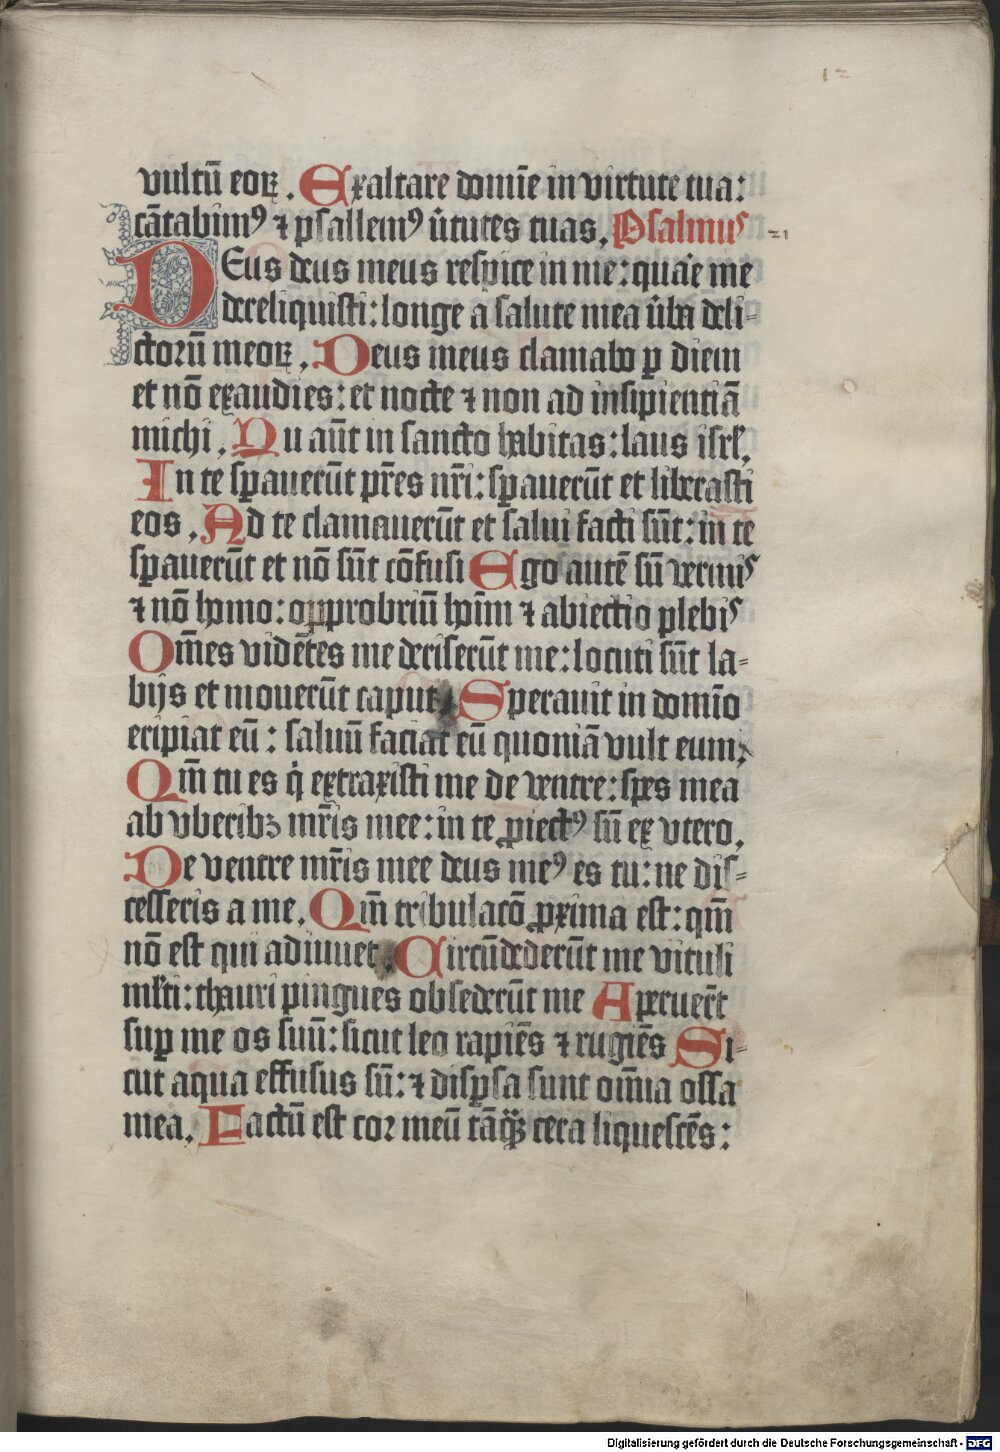 12
vultū eoꝝ. Exaltare domīe in virtute tua:
cātabimꝰ ⁊ psallemꝰ v̓tutes tuas. Psalmus
21
DEus deus meus respice in me: quare me
dereliquisti: longe a salute mea v̓ba deli-
ctorū meoꝝ. Deus meus clamabo ꝑ diem
et nō exaudies: et nocte ⁊ non ad insipientiā
michi. Tu aūt in sancto habitas: laus isrl̓.
In te sꝑauerūt pr̄es nr̄i: sꝑauerūt et liberasti
eos. Ad te clamauerūt et salui facti sūt: in te
sꝑauerūt et nō sūt cōfusi Ego autē sū vermis
⁊ nō homo: opprobriū hoīm ⁊ abiectio plebis
Om̄es vidētes me deriserūt me: locuti sūt la-
bijs et mouerūt caput. Sperauit in domīo
eripiat eū: saluū faciat eū quoniā vult eum.
Qm̄ tu es q̇ extraxisti me de ventre: spes mea
ab vberibꝫ mr̄is mee: in te ꝓiectꝰ sū ex vtero.
De ventre mr̄is mee deus meꝰ es tu: ne dis-
cesseris a me. Qm̄ tribulacō ꝓxima est: qm̄
nō est qui adiuuet. Circūdederūt me vituli
ml̓ti: thauri pingues obsederūt me Aperuer̄t
suꝑ me os suū: sicut leo rapiēs ⁊ rugiēs Si-
cut aqua effusus sū: ⁊ disꝑsa sunt om̄ia ossa
mea. Factū est cor meū tāqꝫ cera liquescēs:
Digitalisierung gefördert durch die Deutsche Forschungsgemeinschaft - DFG